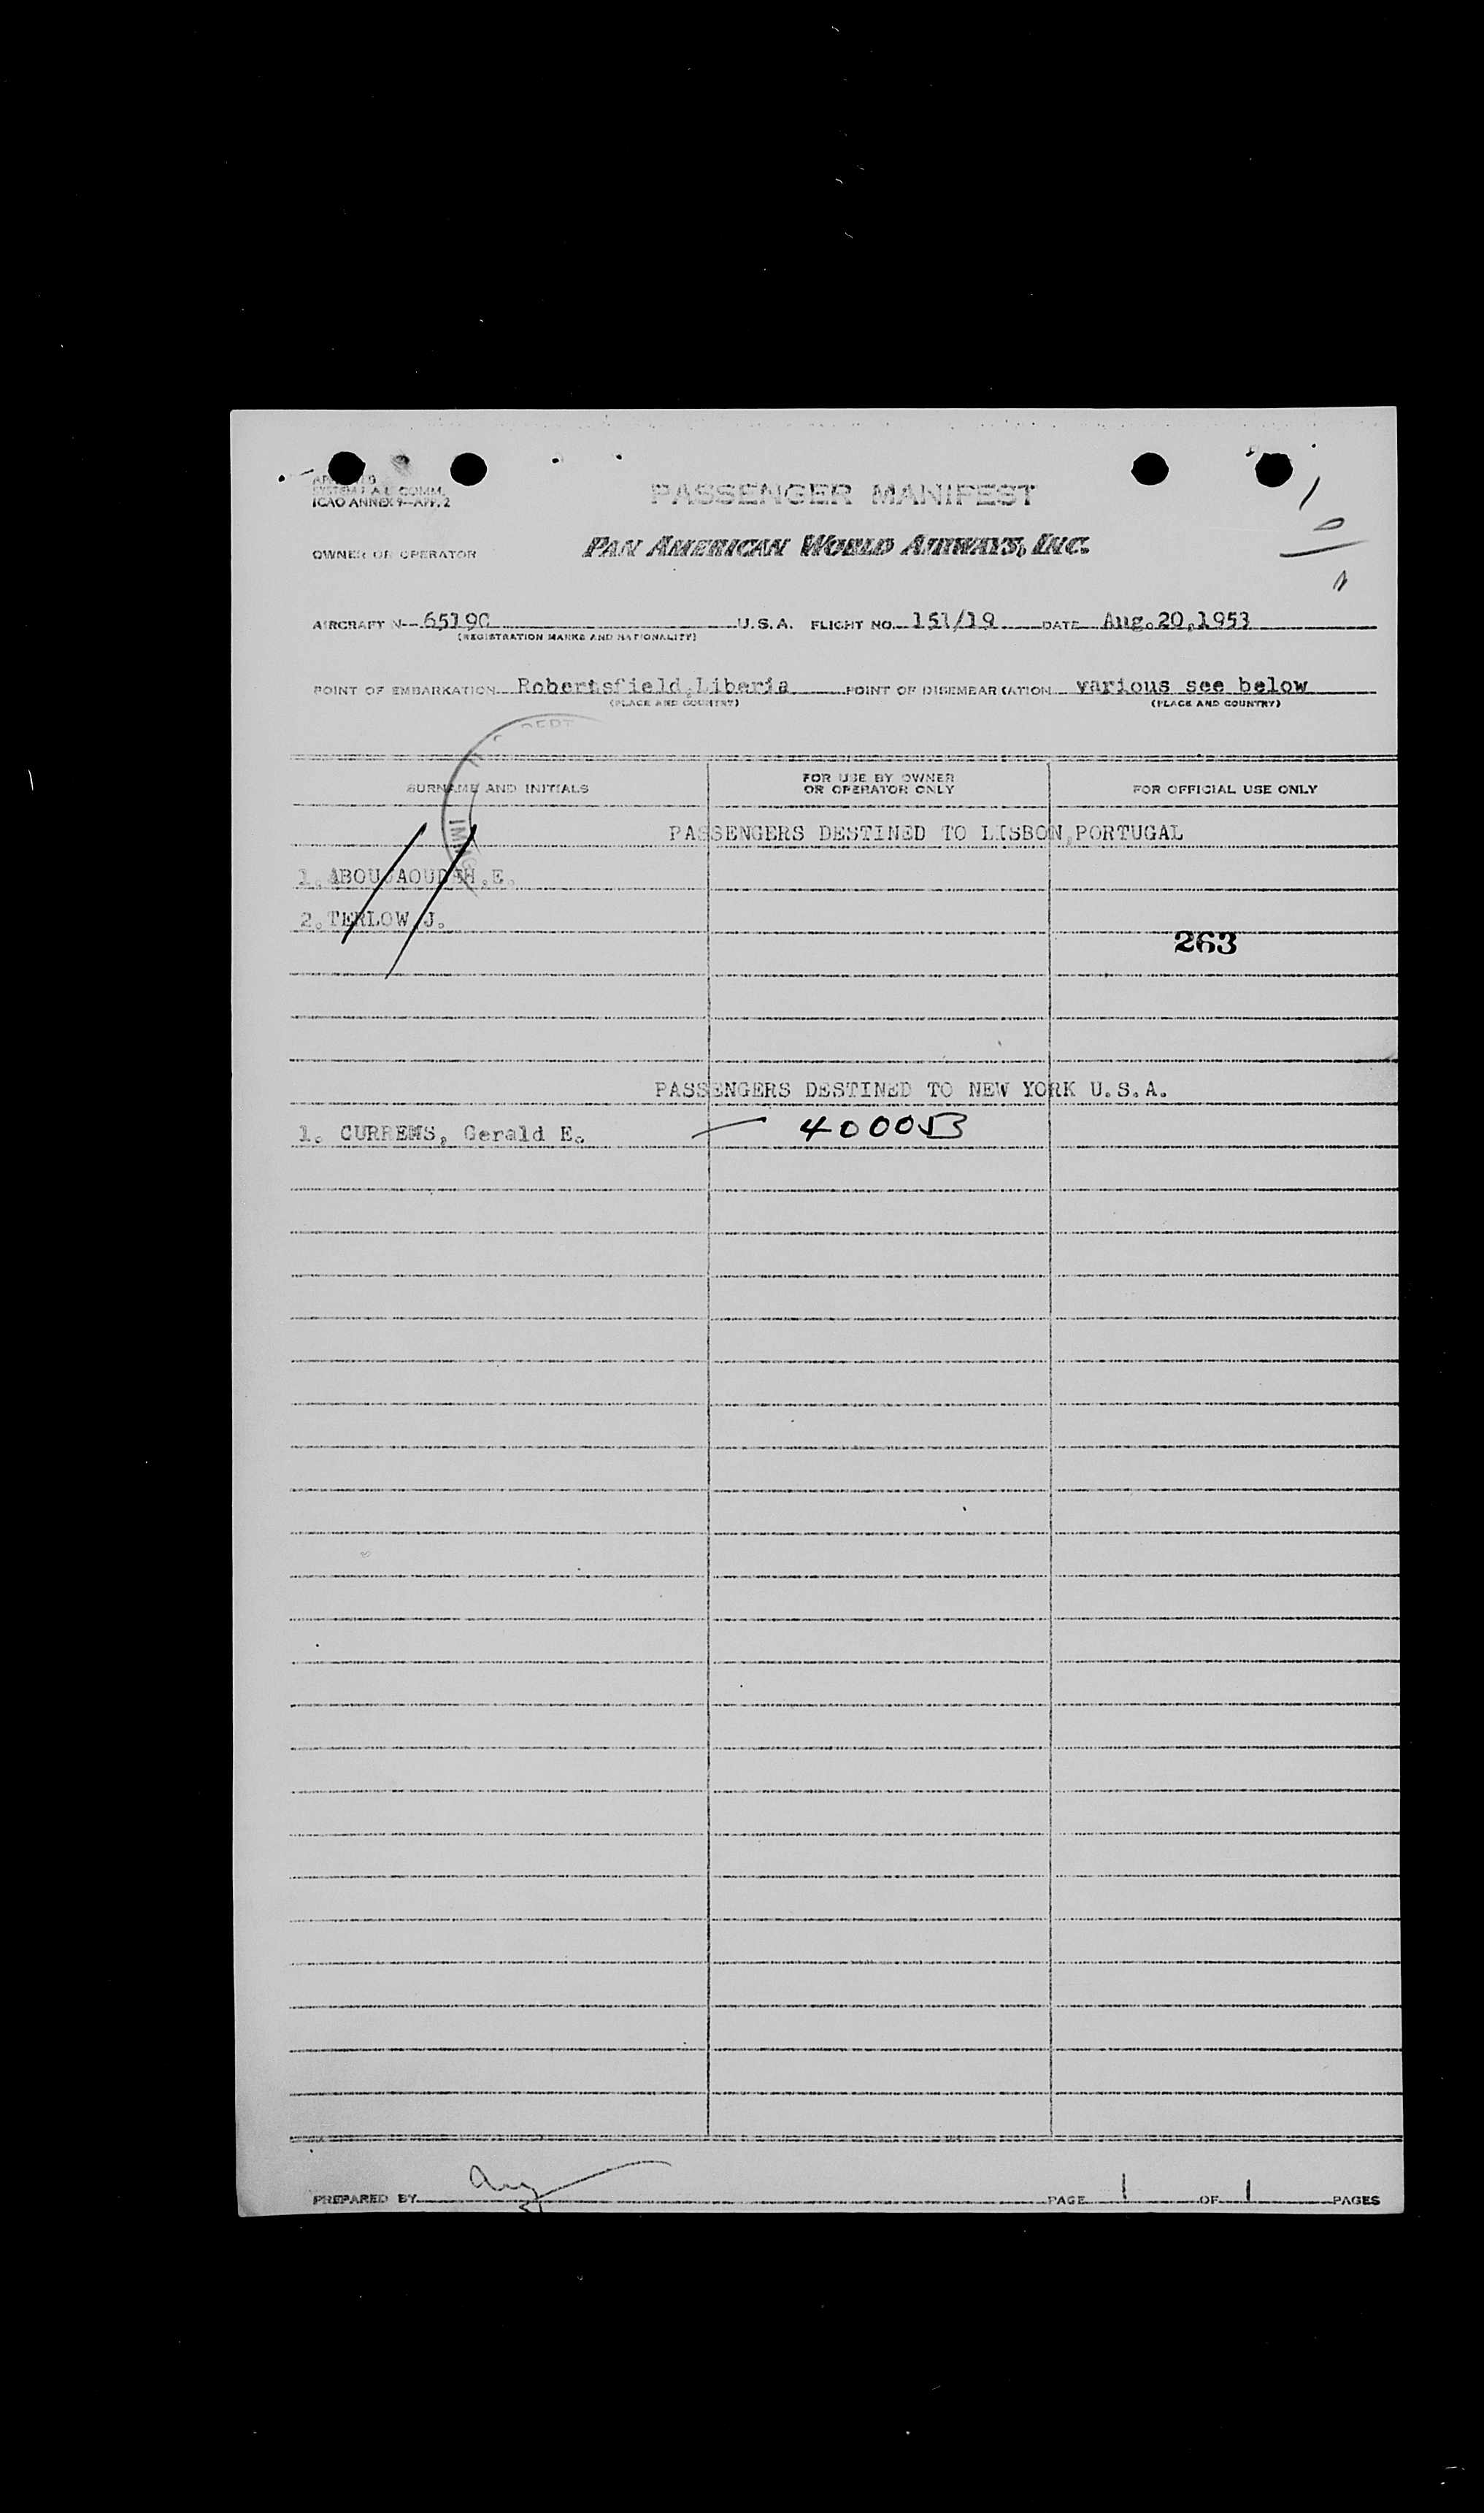 ICAO ANNEX 9—APP. 2
PASSENGER MANIFEST
OWNER OR OPERATOR PAN AMERICAN WORLD AIRWAYS, INC.
AIRCRAFT N— 65190 U.S.A. FLIGHT NO. 151/19 DATE Aug.20,1953
(REGISTRATION MARKS AND NATIONALITY)
POINT OF EMBARKATION Robertsfield,Liberia POINT OF DISEMBARKATION various see below
(PLACE AND COUNTRY) (PLACE AND COUNTRY)
DEPT
IMMIG
SURNAME AND INITIALS FOR USE BY OWNER OR OPERATOR ONLY FOR OFFICIAL USE ONLY
PASSENGERS DESTINED TO LISBON,PORTUGAL
1. ABOUJAOUDEH.E.
2. TERLOW J.
263
PASSENGERS DESTINED TO NEW YORK U.S.A.
1. CURREMS, Gerald E. — 4000B
PREPARED BY PAGE 1 OF 1 PAGES